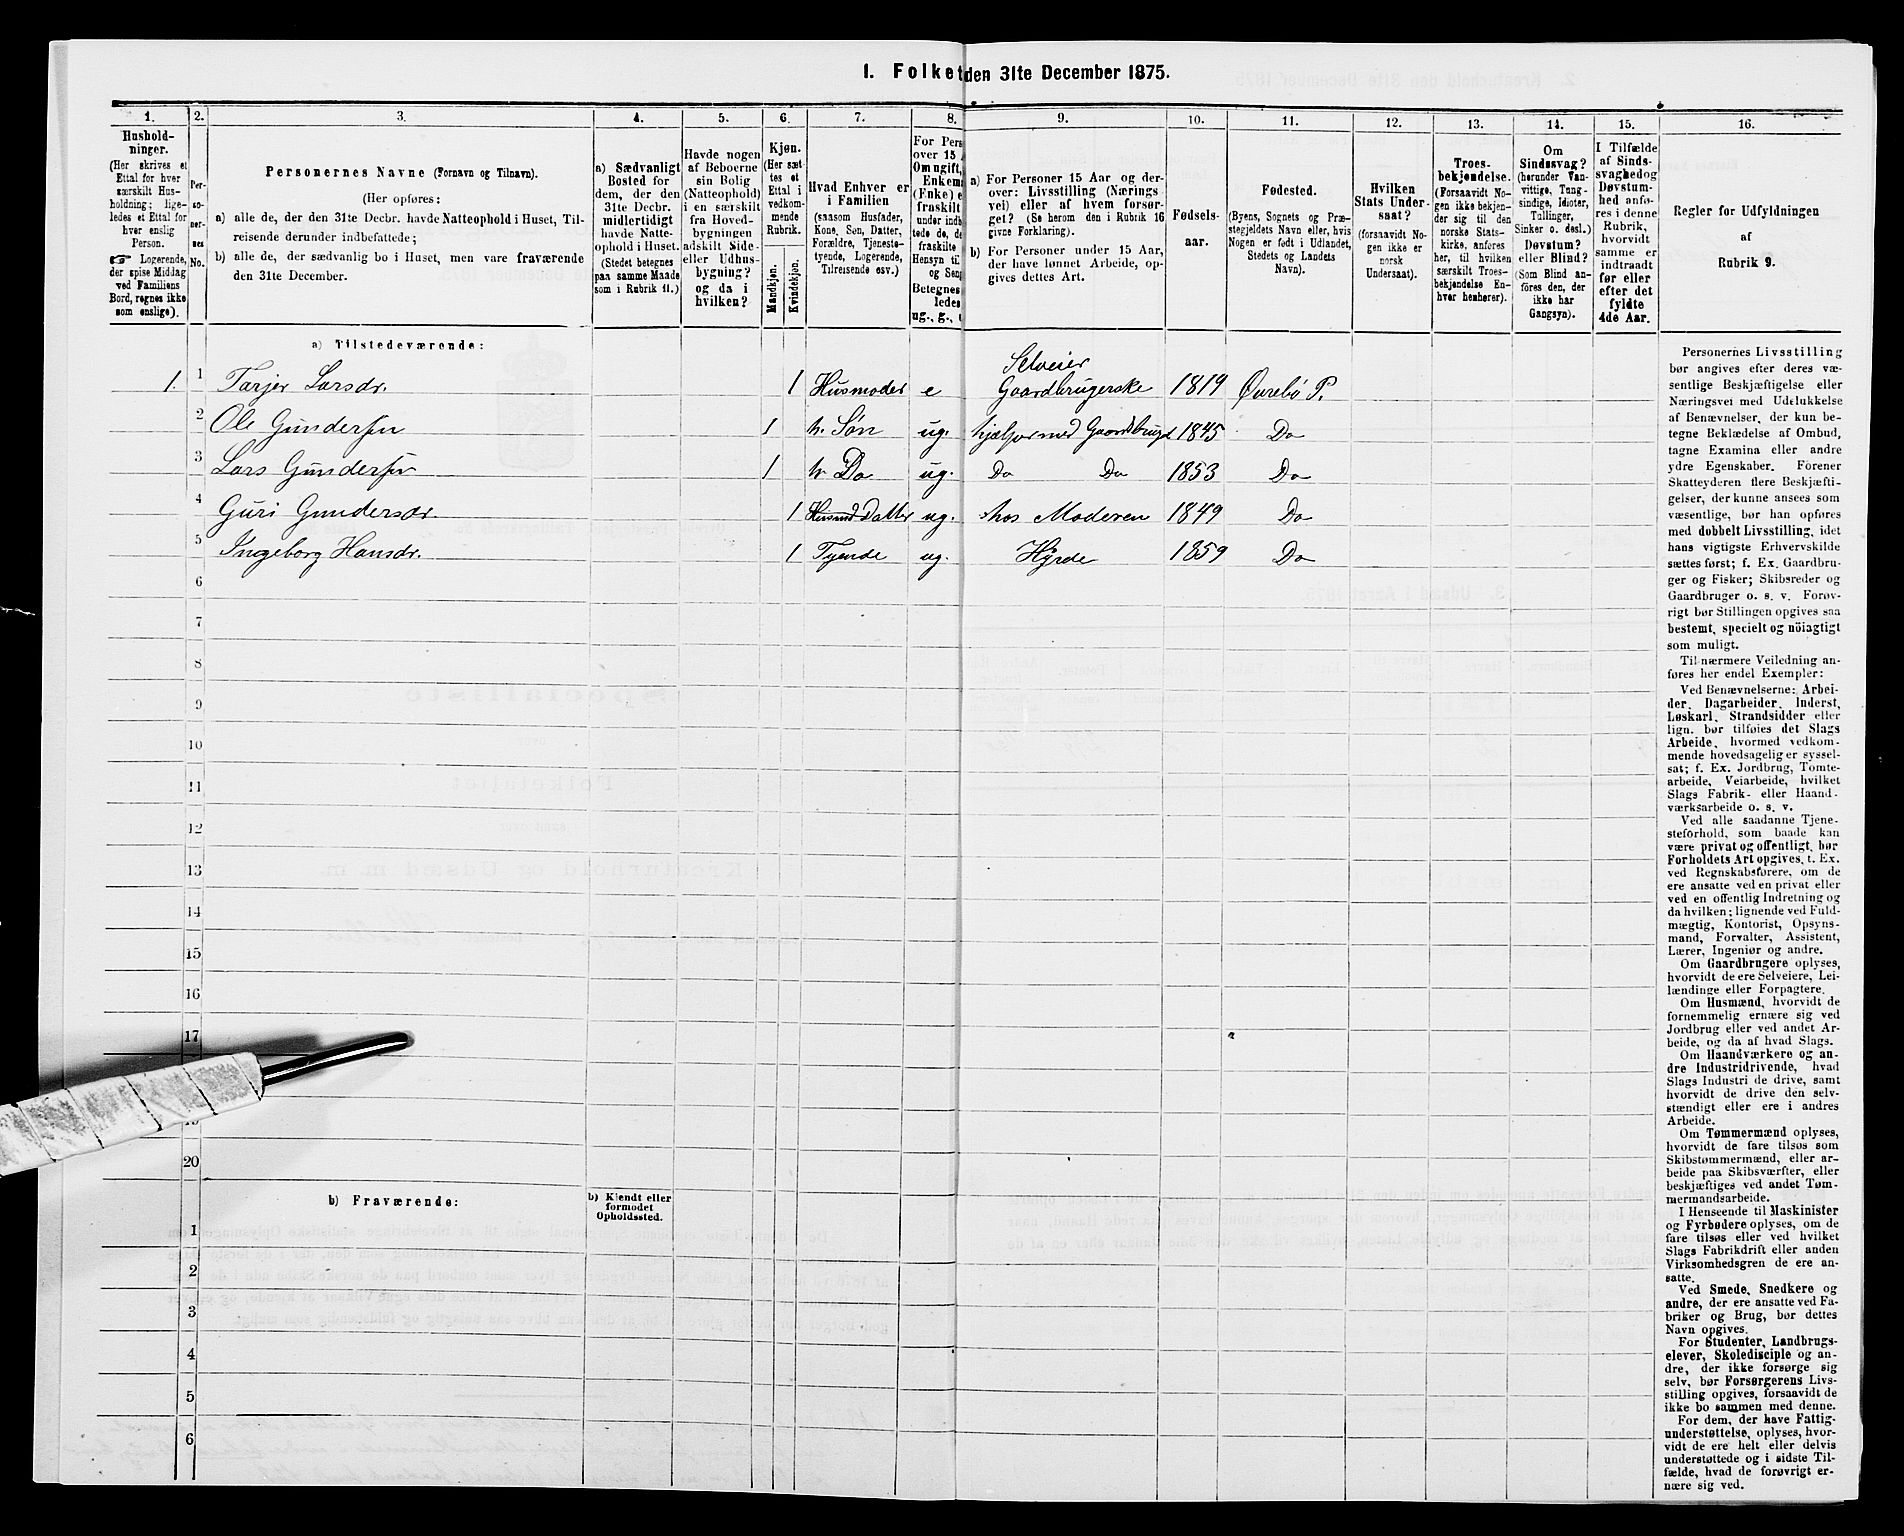 1. Folket den 31te December 1875.
1. 2. 3. 4. 5. 6. 7. 8. 9. 10. 11. 12. 13. 14. 15. 16.
Hushold-
ninger.
(Her skrives et
Ettal for hver
særskilt Hus-
holdning; lige-
ledes et Ettal for
hver enslig
Person.
☞ Logerende,
der spise Middag
ved Familiens
Bord, regnes ikke
som enslige).
Per-
so-
ner-
nes
No.
Personernes Navne (Fornavn og Tilnavn).
(Her opføres:
a) alle de, der den 31te Decbr. havde Natteophold i Huset, Til-
reisende derunder indbefattede;
b) alle de, der sædvanlig bo i Huset, men vare fraværende
den 31te December.
a) Sædvanligt
Bosted for
dem, der den
31te Decbr.
midlertidigt
havde Natte-
ophold i Huset.
(Stedet betegnes
paa samme Maade
som i Rubrik 11.)
Havde nogen
af Beboerne
sin Bolig
(Natteophold)
i en særskilt
fra Hoved-
bygningen
adskilt Side-
eller Udhus-
bygning?
og da i
hvilken?
Kjøn.
(Her sæt-
tes et
Ettal i
vedkom-
mende
Rubrik.
Mandkjøn.
Kvindekjøn.
Hvad Enhver er
i Familien
(saasom Husfader,
Kone, Søn, Datter,
Forældre, Tjeneste-
tyende, Logerende,
Tilreisende osv.)
For Pers
over 15 A
Om ugift,
Enkem
(Enke) e
fraskilt
under indb
tede de, de
fraskilte
Hensyn til
og Seng
Betegnes
ledes
ug., g., e
a) For Personer 15 Aar og der-
over: Livsstilling (Nærings
vei) eller af hvem forsør-
get? (Se herom den i Rubrik 16
givne Forklaring).
b) For Personer under 15 Aar,
der have lønnet Arbeide, op-
gives dettes Art.
Fødsels-
aar.
Fødested.
(Byens, Sognets og Præ-
stegjeldets Navn eller, hvis
Nogen er født i Udlandet,
Stedets og Landets
Navn).
Hvilken
Stats Under-
saat?
(forsaavidt No-
gen ikke er
norsk
Undersaat).
Troes-
bekjendelse.
(Forsaavidt No-
gen ikke bekjen-
der sig til den
norske Stats-
kirke, anføres
her, til hvilken
særskilt Troes-
bekjendelse En-
hver henhører).
Om
Sindssvag?
(herunder Van-
vittige, Tung-
sindige, Idioter,
Tullinger,
Sinker o. desl.)
Døvstum?
eller Blind?
(Som Blind an-
føres den, der
ikke har
Gangsyn).
I Tilfælde
af Sinds-
svaghed og
Døvstum-
hed anfø-
res i denne
Rubrik,
hvorvidt
samme er
indtraadt
før eller
efter det
fyldte
4de Aar.
Regler for Udfyldningen
af
Rubrik 9.
a) Tilstedeværende:
Selveier
1. 1 Tarjer Larsdr. 1 Husmoder e Gaardbrugerske 1819 Øvrebö P.
2 Ole Gundersen 1 h. Søn ug. hjælper med Gaardsbruget 1845 Do
3 Lars Gundersen 1 h Do ug. Do Do 1853 Do
4 Guri Gundersdr. 1 Datter ug. hos Moderen 1849 Do
5 Ingeborg Hansdr. 1 Tyende ug. Hyrde 1859 Do
6
7
8
9
10
11
12
13
14
15
16
17
19
20
b) Fraværende:
b) Kjendt eller
formodet
Opholdssted.
1
2
3
4
5
6
Personernes Livsstilling
bør angives efter deres væ-
sentlige Beskjæftigelse eller
Næringsvei med Udelukkelse
af Benævnelser, der kun be-
tegne Beklædelse af Ombud,
tagne Examina eller andre
ydre Egenskaber. Forener
Skatteyderen flere Beskjæfti-
gelser, der kunne ansees som
væsentlige, bør han opføres
med dobbelt Livsstilling, idet
hans vigtigste Erhvervskilde
sættes først; f. Ex. Gaardbru-
ger og Fisker; Skibsreder og
Gaardbruger o. s. v. Forøv-
rigt bør Stillingen opgives saa
bestemt, specielt og nöiagtigt
som muligt.
Til nærmere Veiledning an-
føres her endel Exempler:
Ved Benævnelserne: Arbei-
der, Dagarbeider, Inderst,
Løskarl, Strandsidder eller
lign. bør tilføies det Slags
Arbeide, hvormed vedkom-
mende hovedsagelig er syssel-
sat; f. Ex. Jordbrug, Tomte-
arbeide, Veiarbeide, hvilket
Slags Fabrik- eller Haand-
værksarbeide o. s. v.
Ved alle saadanne Tjene-
steforhold, som baade kan
være privat og offentligt, bør
Forholdets Art opgives, t. Ex.
ved Regnskabsførere, om de
ere ansatte ved en privat eller
ved en offentlig Indretning og
da hvilken; lignende ved Fuld-
mægtig, Kontorist, Opsyns-
mand, Forvalter, Assistent,
Lærer, Ingeniør og andre.
Om Gaardbrugere oplyses,
hvorvidt de ere Selveiere, Lei-
lændinge eller Forpagtere.
Om Husmænd, hvorvidt de
fornemmelig ernære sig ved
Jordbrug eller ved andet Ar-
beide, og da af hvad Slags.
Om Haandværkere og an-
dre Industridrivende, hvad
Slags Industri de drive, samt
hvorvidt de drive den selv-
stændigt eller ere i andres
Arbeide.
Om Tømmermænd oplyses,
hvorvidt de fare tilsøs som
Skibstømmermænd, eller ar-
beide paa Skibsværfter, eller
beskjæftiges ved andet Tøm-
mermandsarbeide.
I Henseende til Maskinister
og Fyrbødere oplyses, om de
fare tilsøs eller ved hvilket
Slags Fabrikdrift eller anden
Virksomhedsgren de ere an-
satte.
Ved Smede, Snedkere og
andre, der ere ansatte ved Fa-
briker og Brug, bør dettes
Navn opgives.
For Studenter, Landbrugs-
elever, Skoledisciple og an-
dre, der ikke forsørge sig
selv, bør Forsørgerens Livs-
stilling opgives, forsaavidt de
ikke bo sammen med denne.
For dem, der have Fattig-
understøttelse, oplyses, hvor-
vidt de ere helt eller delvis
understøttede og i sidste Til-
fælde, hvad de forøvrigt er-
nære sig ved.